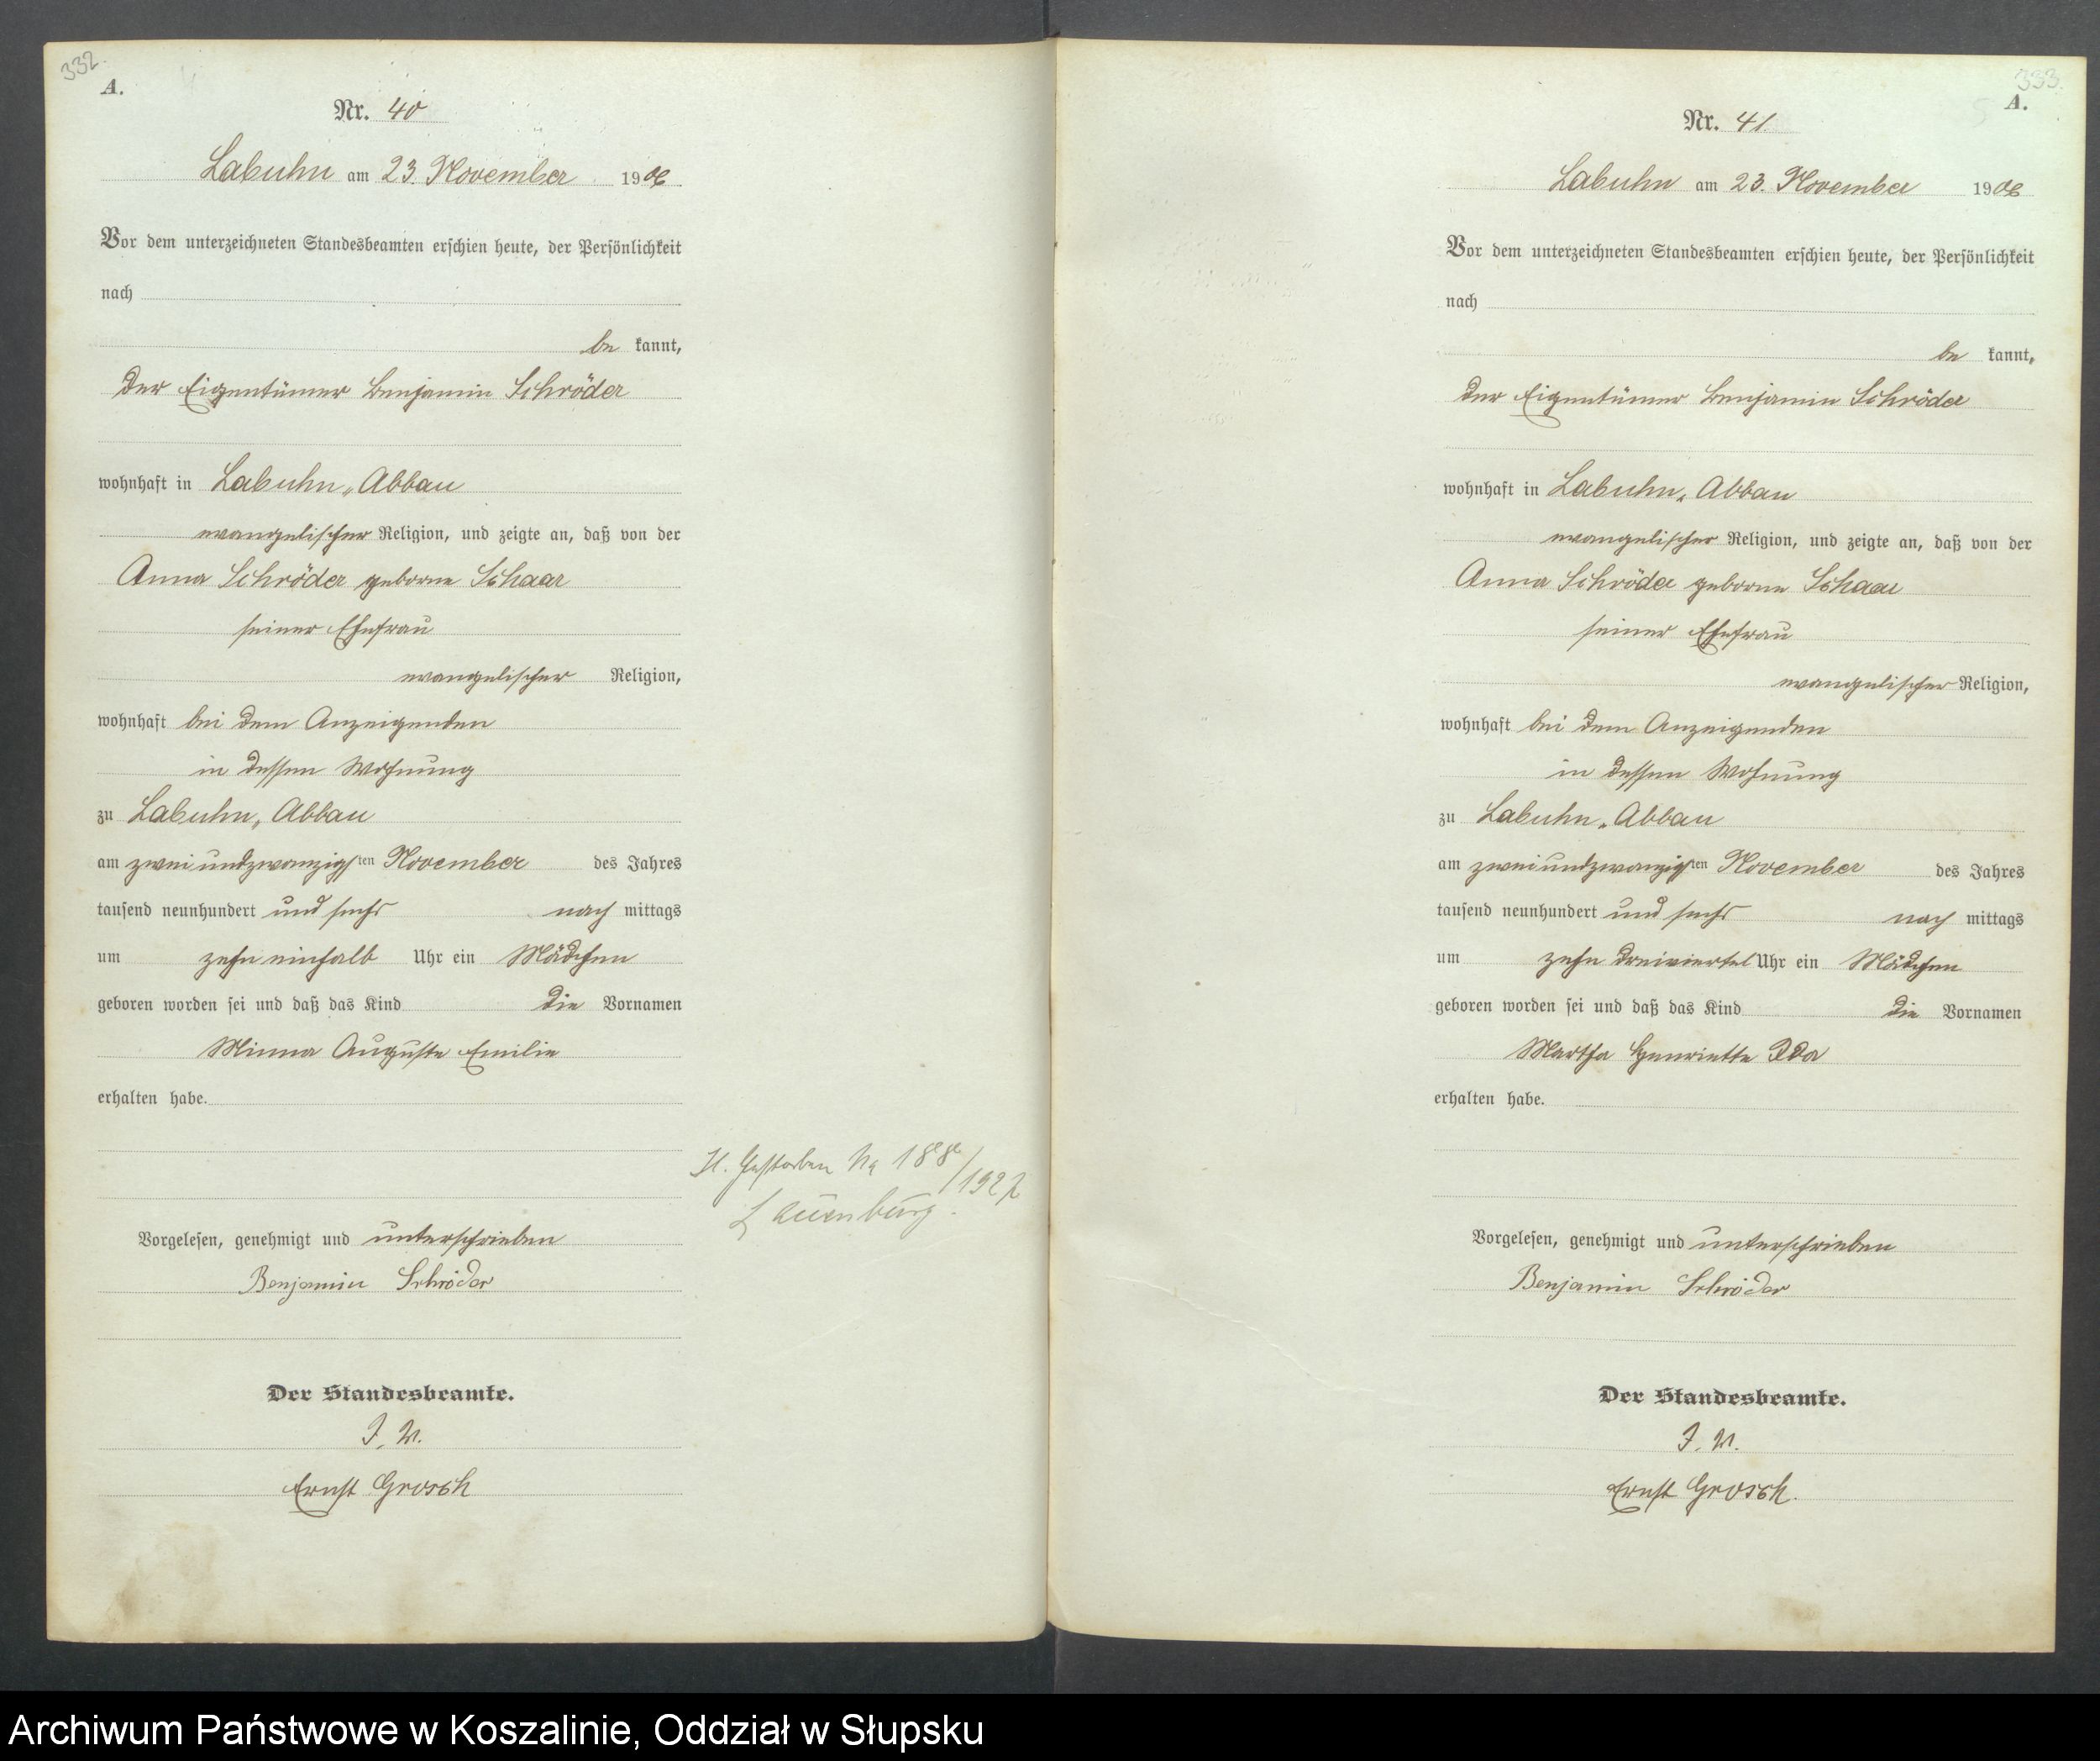 332.
A.
Nr. 40
Labuhn am 23. November 1906
Vor dem unterzeichneten Standesbeamten erschien heute, der Persönlichkeit
nach
be kannt,
der Eigentümer Benjamin Schröder
wohnhaft in Labuhn, Abbau
evangelischer Religion, und zeigte an, daß von der
Anna Schröder geborne Schaar
seiner Ehefrau
evangelischer Religion,
wohnhaft bei dem Anzeigenden
in dessen Wohnung
zu Labuhn, Abbau
am zweiundzwanzigsten November des Jahres
tausend neunhundert und sechs nach mittags
um zehn einhalb Uhr ein Mädchen
geboren worden sei und daß das Kind die Vornamen
Minna Auguste Emilie
erhalten habe.
H. Gestorben No 188/1927
Lauenburg.
Vorgelesen, genehmigt und unterschrieben
Benjamin Schröder
Der Standesbeamte.
J. V.
Ernst Grosch
333.
A.
Nr. 41.
Labuhn am 23. November 1906
Vor dem unterzeichneten Standesbeamten erschien heute, der Persönlichkeit
nach
be kannt,
der Eigentümer Benjamin Schröder
wohnhaft in Labuhn, Abbau
evangelischer Religion, und zeigte an, daß von der
Anna Schröder geborne Schaar
seiner Ehefrau
evangelischer Religion,
wohnhaft bei dem Anzeigenden
in dessen Wohnung
zu Labuhn, Abbau
am zweiundzwanzigsten November des Jahres
tausend neunhundert und sechs nach mittags
um zehn dreiviertel Uhr ein Mädchen
geboren worden sei und daß das Kind die Vornamen
Martha Henriette Ida
erhalten habe.
Vorgelesen, genehmigt und unterschrieben
Benjamin Schröder
Der Standesbeamte.
J. V.
Ernst Grosch.
Archiwum Państwowe w Koszalinie, Oddział w Słupsku